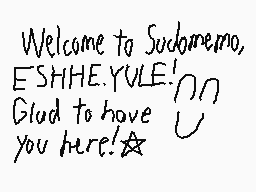 Welcome to Sudomemo,
ESHHE.YULE!
Glad to have
you here!☆